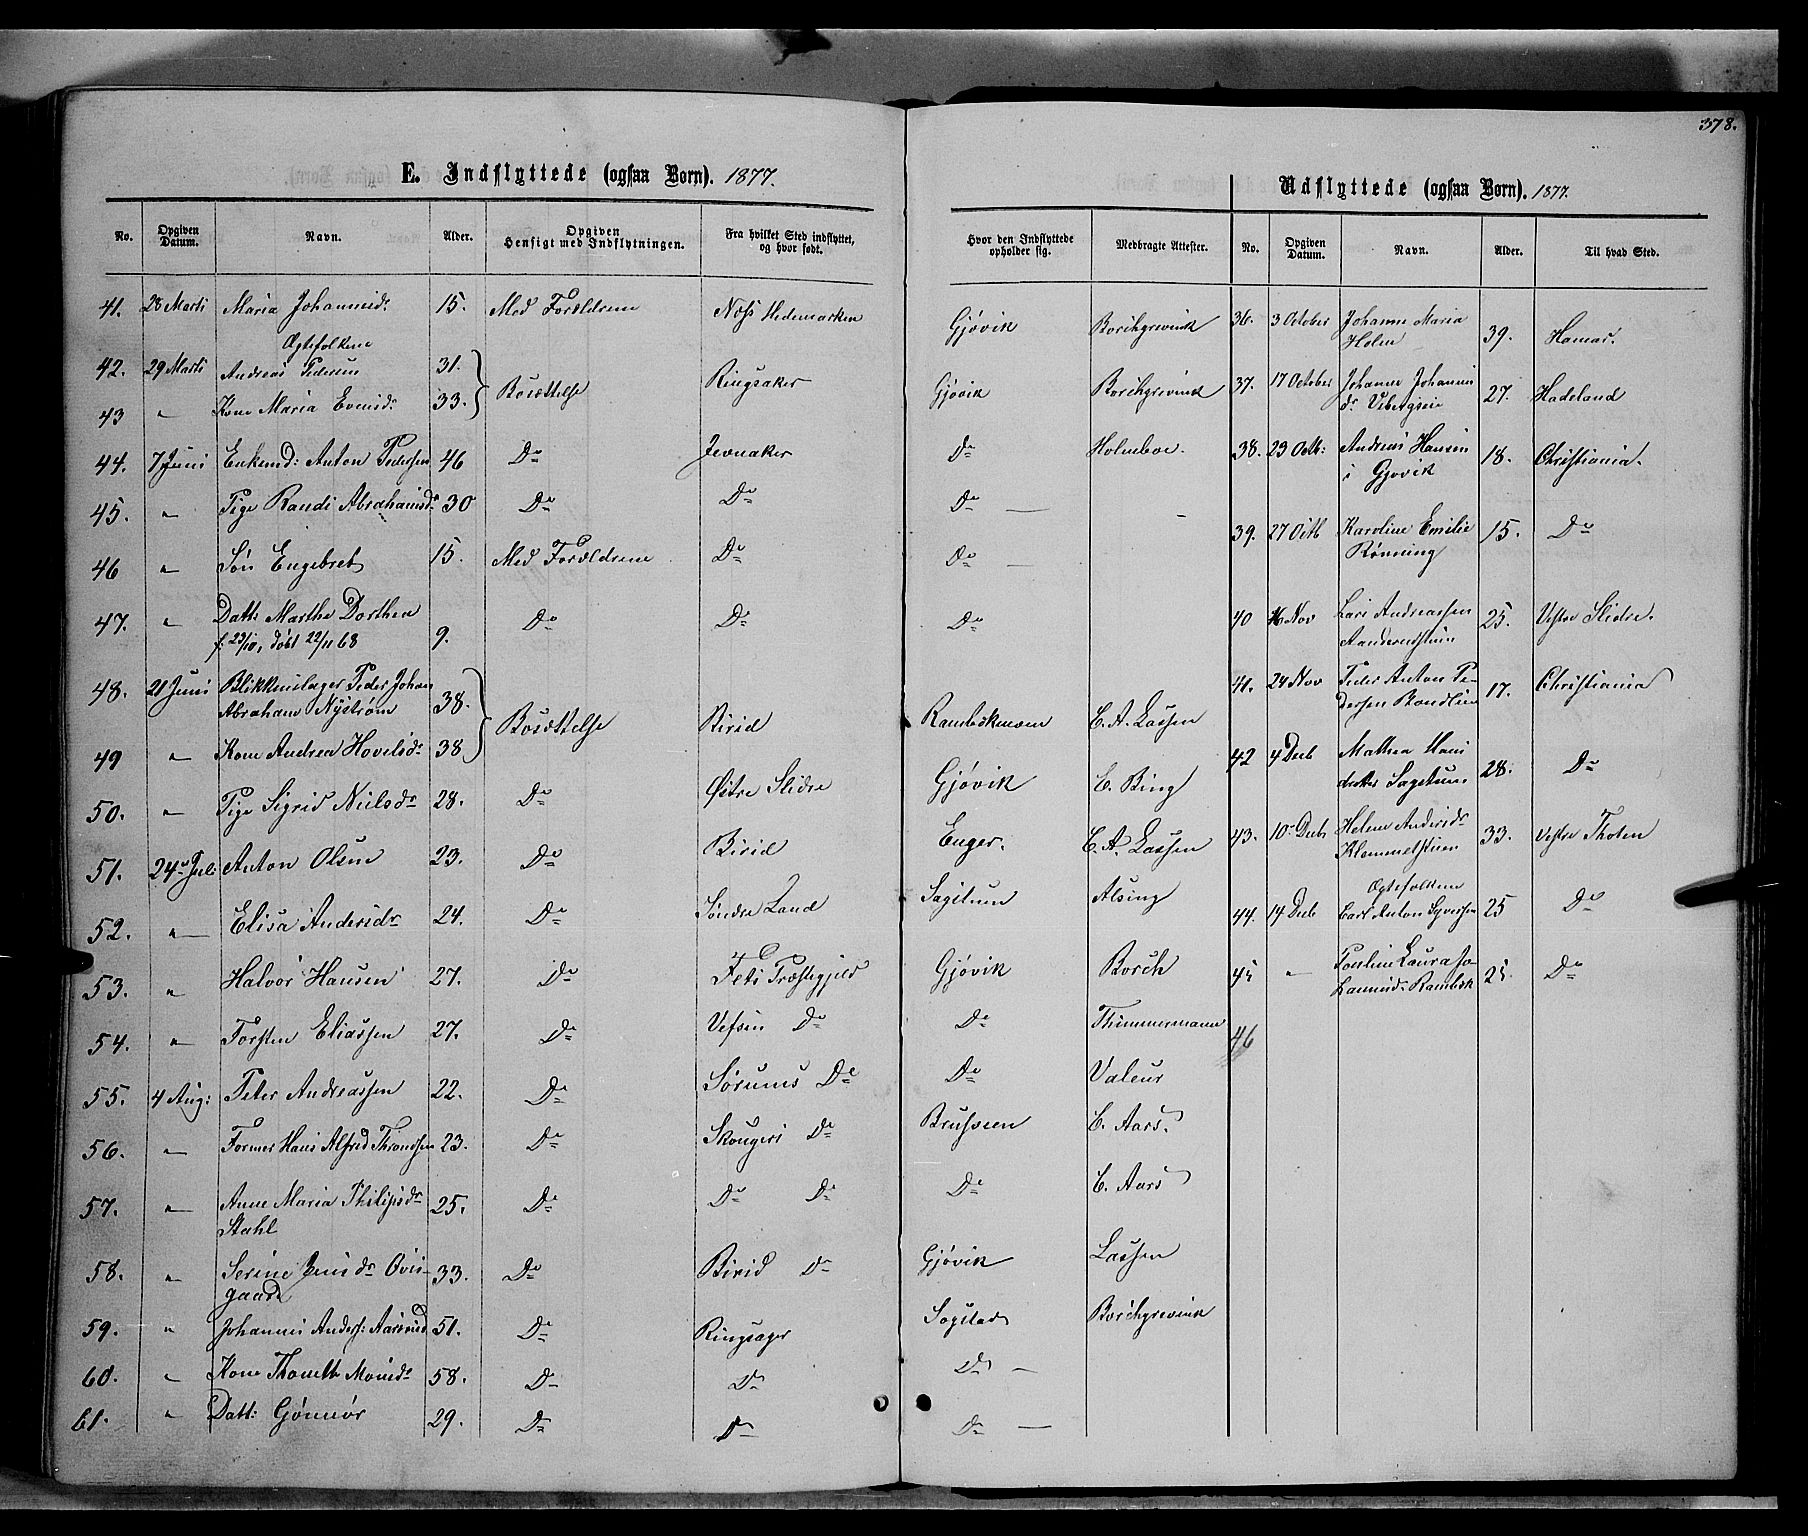 378.
E. Indflyttede (ogsaa Børn). 1877.
No. Opgiven Datum. Navn. Alder. Opgiven Hensigt med Indflytningen. Fra hvilket Sted indflyttet, og hvor født. Hvor den Indflyttede opholder sig. Medbragte Attester.
41. 28 Marts Maria Johannesdr 15. Med Forældrene Næss Hedemarken Gjøvik Borchgrevink
Ægtefolkene
42. 29 Marts Andreas Pedersen 31. Bosættelse Ringsaker Gjøvik Borchgrevink
43 " Kone Maria Evensdr 33.
44. 7 Juni Enkemd: Anton Pedersen 46 Do Jevnaker Do Holmboe.
45. " Pige Randi Abrahamsdr 30 Do Do Do — -
46 " Søn Engebret 15. Med Forældrene Do Do —
47. " Datt: Marthe Dorthea
f. 23/10, døbt 22/11 68 9. Do Do Do
48. 21 Juni Blikkenslager Peder Johan
Abraham Nyström 38. Bosættelse Birid Rambekmoen C. A. Lassen
49 " Kone Andrea Hovelsdr 38
50. " Pige Sigrid Nielsdr 28. Do Østre Slidre Gjøvik E. Bing
51. 24 Jul: Anton Olsen 23. Do Birid Enger. C. A. Lassen
52. " Elisa Andersdr 24. Do Søndre Land Sagstuen Alsing
53. " Halvor Hansen 27. Do Fets Præstegjeld Gjøvik Borch
54. " Torsten Eliassen 27. Do Vefsen Do Do Thimmermann
55. 4 Aug: Peter Andreassen 22. Do Sørums Do Do Valeur
56. " Former Hans Alfred Throndsen 23. Do Skougers Do Brusveen C. Aars.
57. " Anne Maria Philipsdr
Stahl 25. Do Do Do Do C. Aars
58. " Serine Jensdr Øvis-
gaard 33. Do Birid Do Gjøvik Lassen
59. " Johannes Anders: Aasrud 51. Do Ringsager Sogstad Borchgrevink
60. " Kone Thonette Monsdr 58. Do Do Do —
61. " Datt: Gjønnør 29. Do Do Do —
Udflyttede (ogsaa Børn). 1877.
No. Opgiven Datum. Navn. Alder. Til hvad Sted.
36. 3 October Johanne Maria
Holm 39. Hamar.
37. 17 October Johanne Johannes
dr Vibergseie 27. Hadeland
38. 23 Octb: Andreas Hansen
i Gjøvik 18. Christiania.
39. 27 Octb Karoline Emilie
Rønning 15. Do
40 16 Nov Lars Andreassen
25. Vestre Slidre.
41. 24 Nov Peder Anton Pe-
dersen 17. Christiania
42 4 Decb Mathea Hans
datter Sagstuen 28. Do
43. 10 Decb Helene Andersdr
Klemmetstuen 33. Vestre Thoten
Ægtefolkene
44. 14 Decb Carl Anton Syversen 25 Do
45 " Pauline Laura Jo-
hannesdr Rambek 25 Do
46